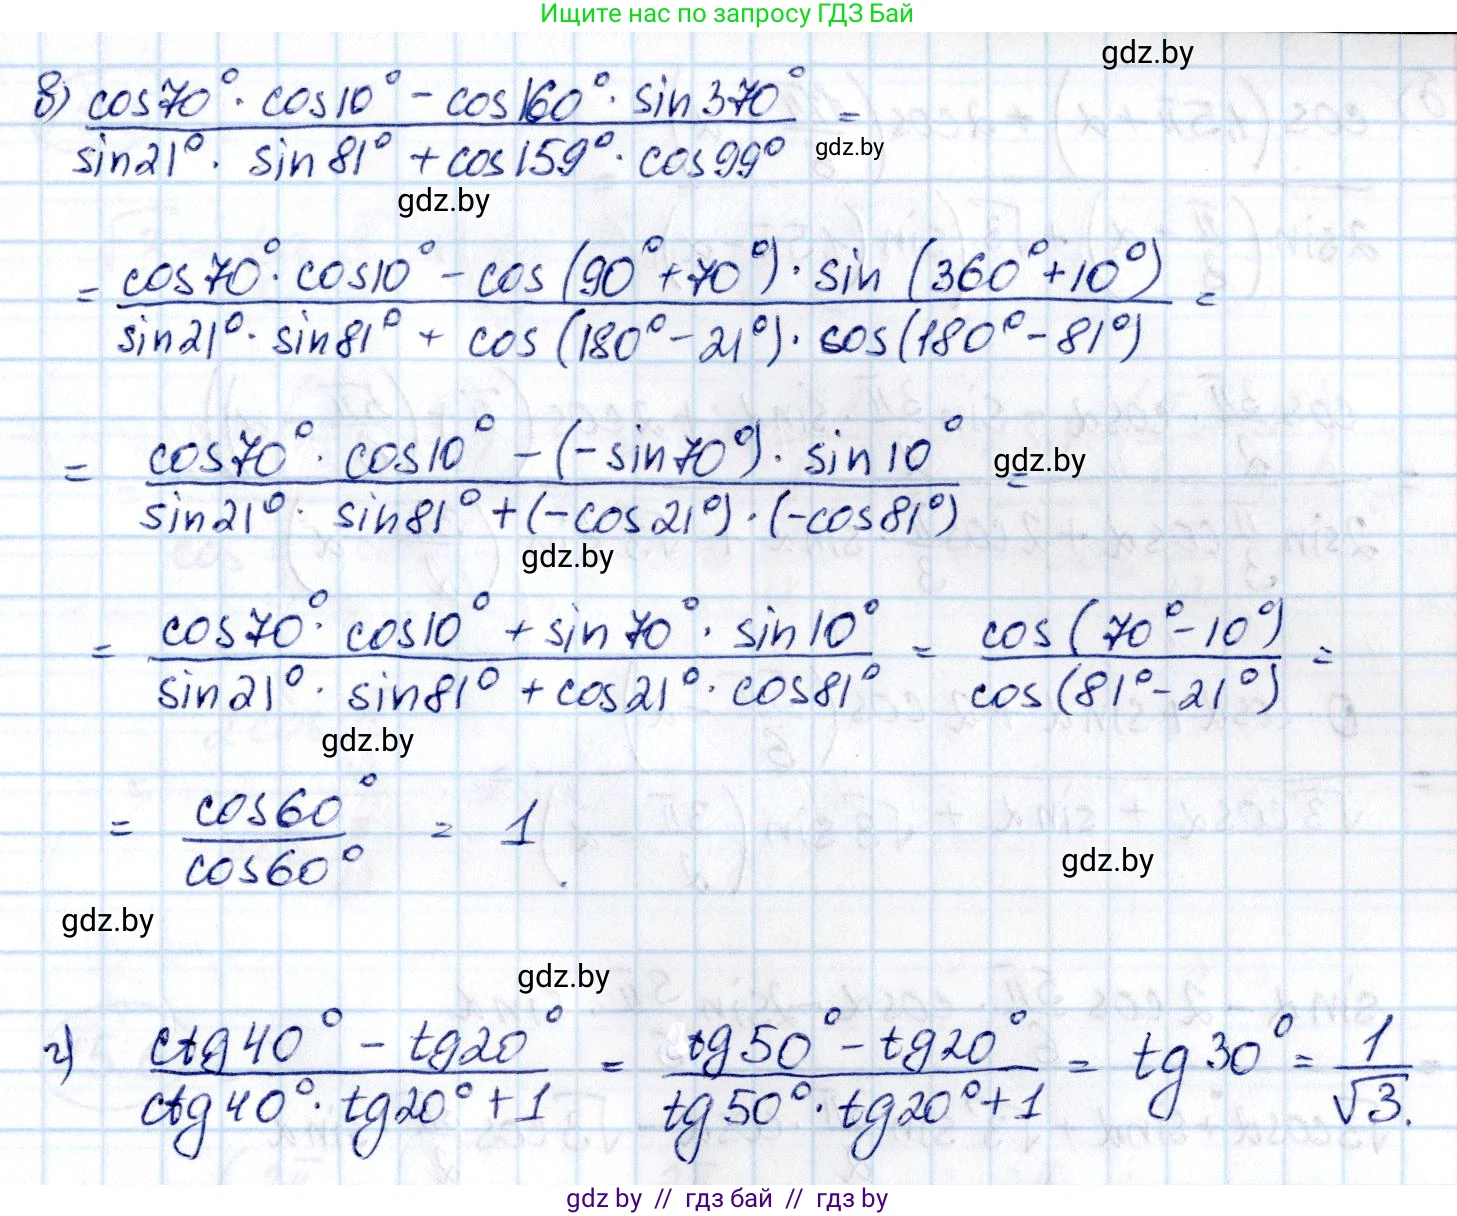 Ищите нас по запросу ГДЗ Бай
gdz.by
в) cos70° · cos10° - cos160° · sin370° =
sin21° · sin81° + cos159° · cos99°
gdz.by
gdz.by
= cos70° · cos10° - cos(90°+70°) · sin(360°+10°) =
sin21° · sin81° + cos(180°-21°) · cos(180°-81°)
= cos70° · cos10° - (-sin70°) · sin10° =
gdz.by
sin21° · sin81° + (-cos21°) · (-cos81°)
gdz.by
= cos70° · cos10° + sin70° · sin10° = cos(70°-10°) =
sin21° · sin81° + cos21° · cos81° cos(81°-21°)
gdz.by
= cos60° = 1.
cos60°
gdz.by
gdz.by
gdz.by
г) ctg40° - tg20° = tg50° - tg20° = tg30° = 1
ctg40° · tg20° + 1 tg50° · tg20° + 1 √3.
gdz by // гдз бай // гдз by